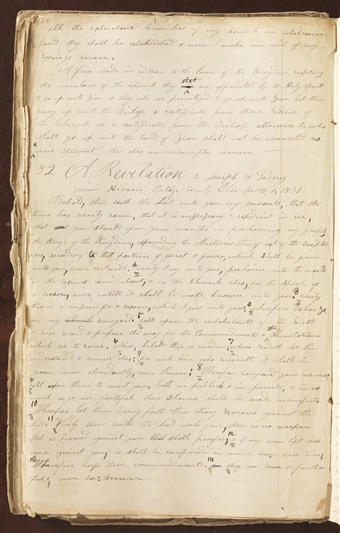 all the extensive branches of my church in whatsoever
land they shall be established & now I make an end of my
sayings amen.
A few words in addition to the laws of the Kingdom respecting
the members of the church they that are appointed by the Holy Spirit
to go up unto Zion & they who are privileged to go up unto Zion let them
carry up unto the Bishop a certificate from three Elders of
the Church or a certificate from the Bishop otherwise he who
shall go up unto the land of Zion shall not be accounted as
wise steward this also an ensample amen
82 A Revelation to Joseph & Sidney
given Hiram Portage County Ohio 1, 1831.
Behold, thus saith the Lord unto you my servants, that the
time has verily come, that it is necessary & expedient in me,
that you should open your mouths in proclaiming my gospel
the things of the Kingdom, expounding the Mysteries thereof out of the scriptures
according to that portion of spirit & power, which shall be given
unto you, even as I will. verily I say unto you, proclaim unto the world
in the regions round about, & in the Church also, for the space of
a season, even until it shall be made known unto you. 3 verily
this is a mission for a season, which I give unto you, 4 wherefore labor ye
my vineyard, 5 call upon the inhabitants of the Earth
& bear record & prepare the way for the Commandments & Revelations
which are to come. 6 Now, behold this is wisdom, whoso readeth let him
understand & receive also; 7 for unto him who receiveth it shall be
given more abundantly, even Power; 8 Wherefore confound your enemies,
call upon them to meet you, both in publick & in private, & in as
much as ye are faithful their shame shall be made manifest.
10 Wherefore let them bring forth their strong reasons against the
11 Verily thus saith the Lord unto you, there is no weapon
that is formed against you shall prosper; 12 & if any man lift his
voice against you, he shall be confounded in mine own due time;
13 Wherefore keep these commandments. 14 they are true & faith-
ful; even so: amen